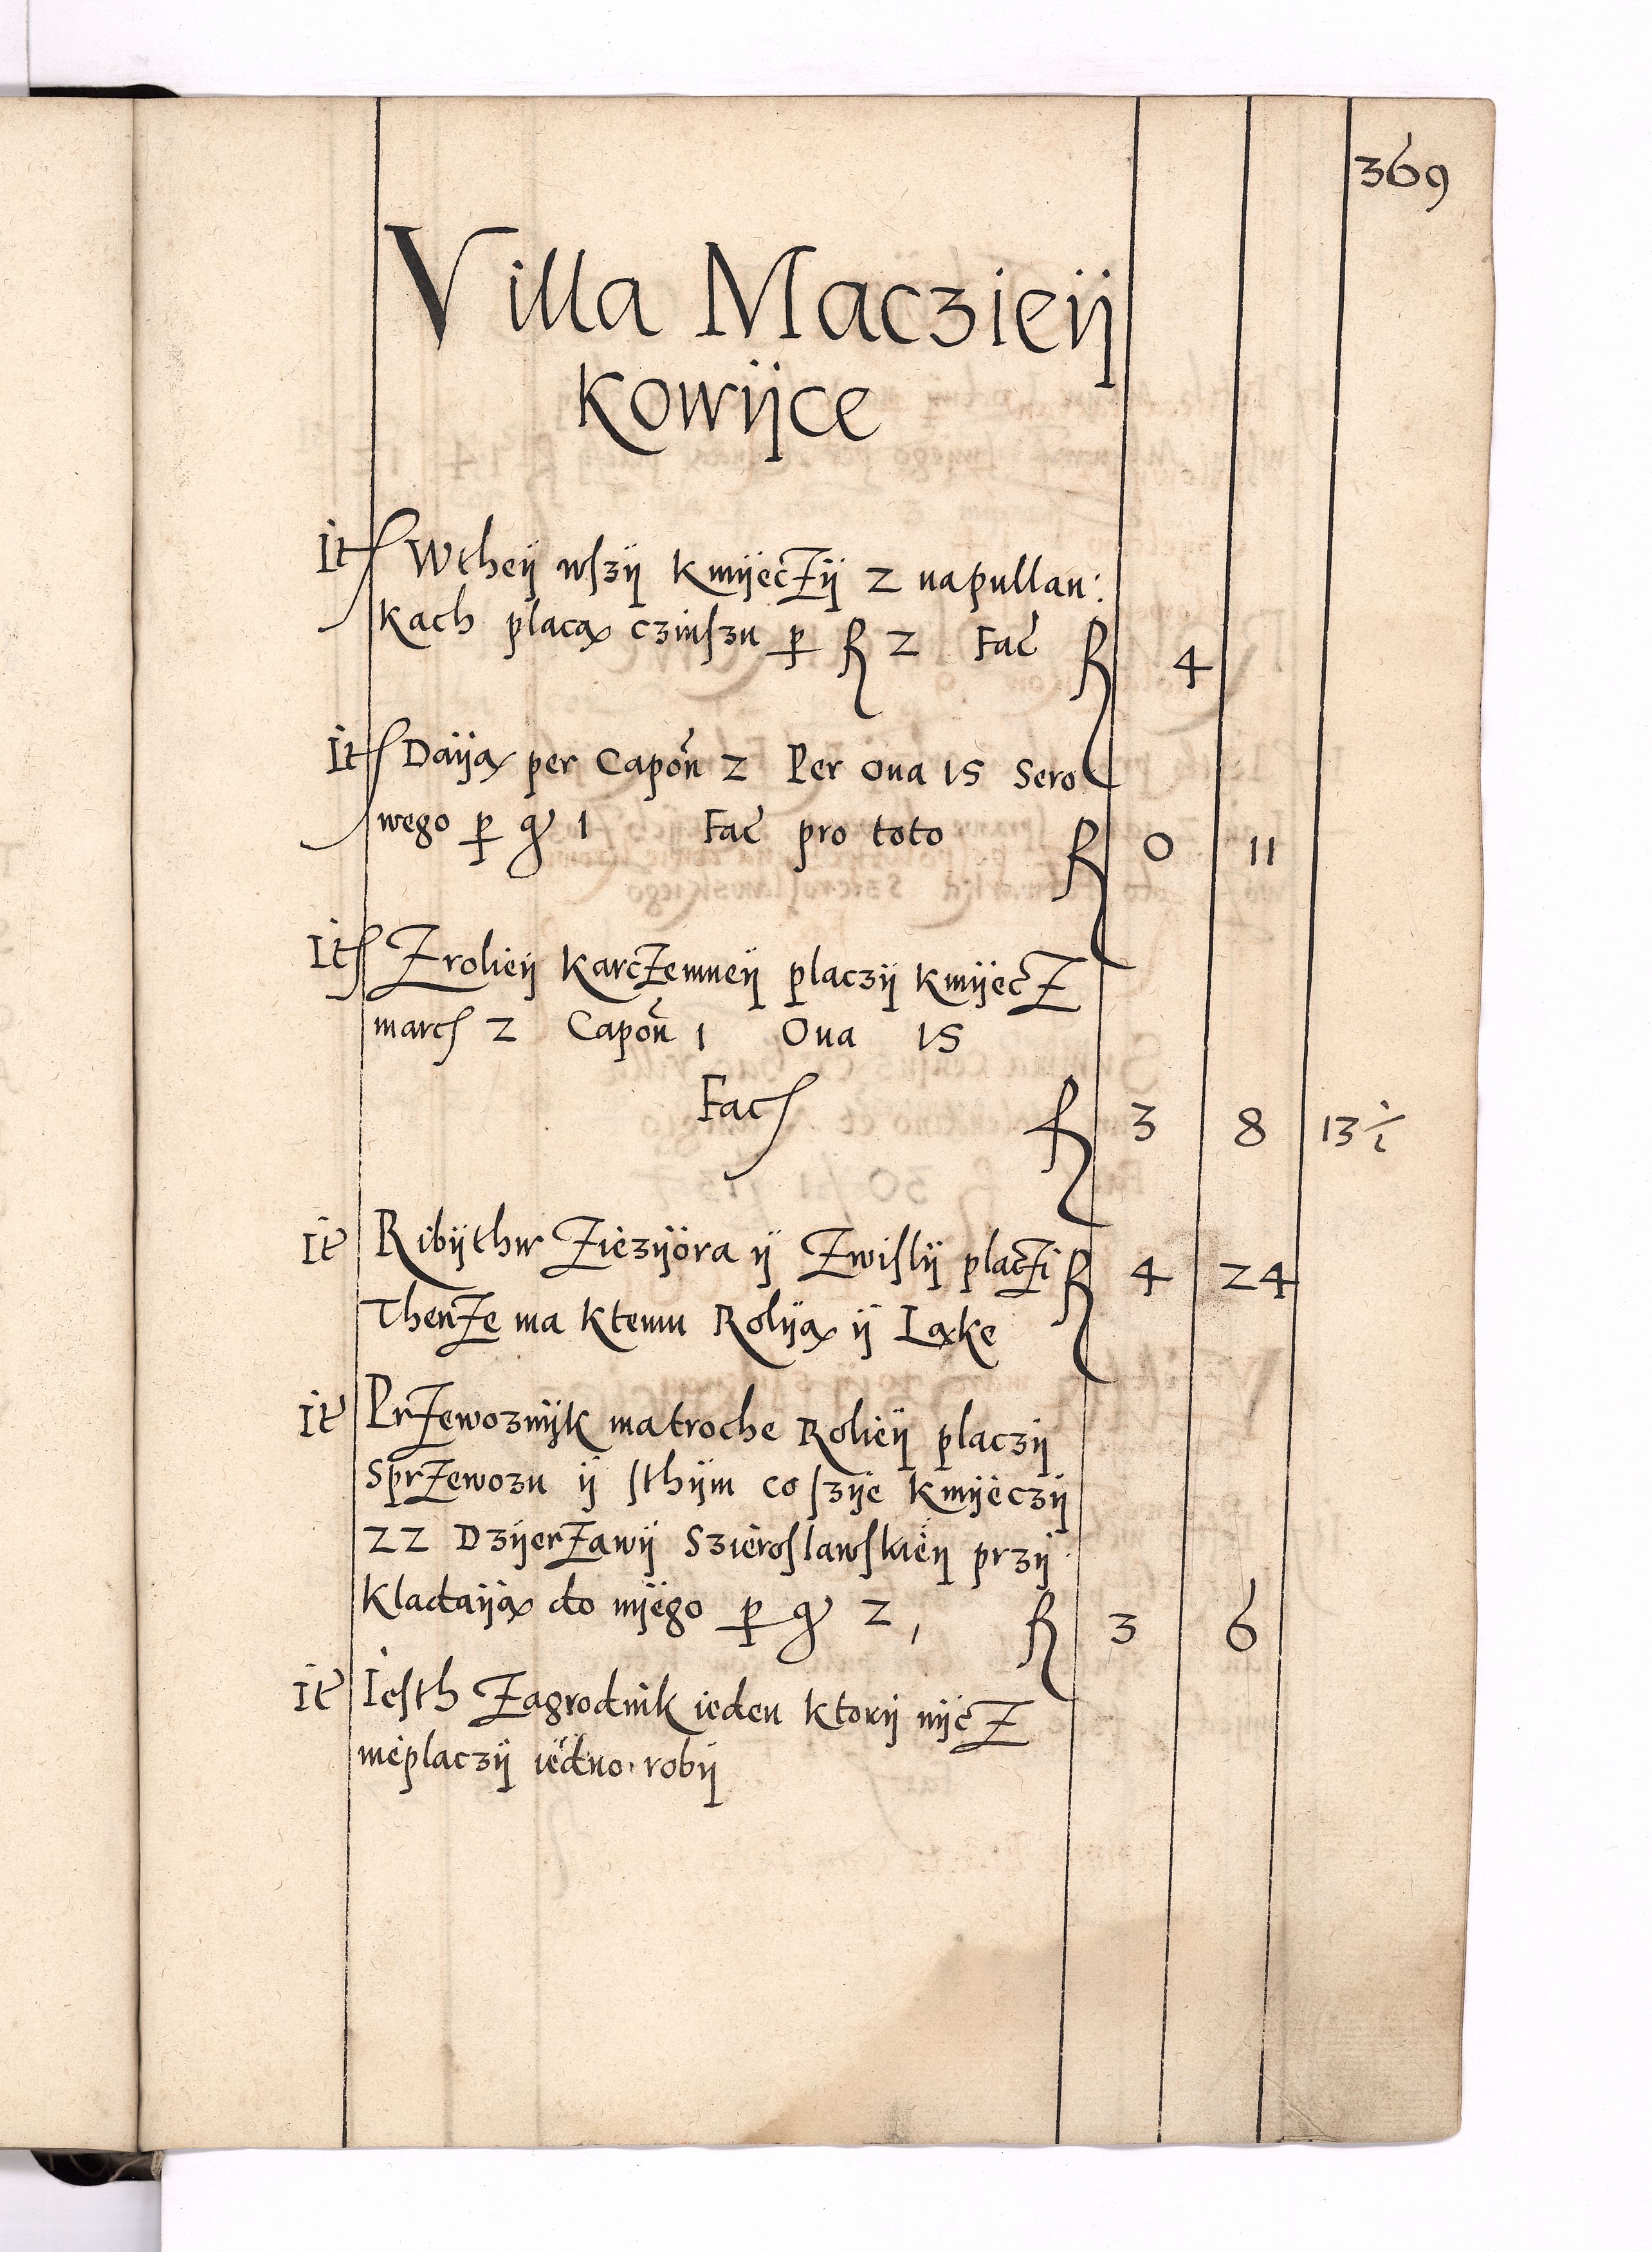 369
Villa Maczieÿ
kowÿce
Itſ Wtheÿ wſzÿ KmÿecZÿ 2 napullan:
kach placax czinſzu ꝑ ƒ 2 Fać ƒ 4
Itſ Daÿax per Capoń 2 Per oua 15 Sero
wego ꝑ gͬ 1 Fać pro toto ƒ 0 11
Itſ Zrolieÿ KarcZemneÿ placzÿ kmÿecZ
marcſ 2 Capoń 1 Oua 15
Facſ ƒ 3 8 13 ½
It Ribÿthw Ziezÿora ÿ Zwiſlÿ placZi ƒ 4 24
ThenZe ma ktemu Rolÿax ÿ Laxke
It PrZewoznÿk matroche Rolieÿ placzÿ
SprZewozu ÿ ſthÿm coſzÿe kmÿeczÿ
22 DzÿerZawÿ Szieroſlawſkieÿ przÿ
Kladaÿax do nÿego ꝑ gͬ 2, ƒ 3 6
It Ieſth Zagrodnik ieden ktorÿ nÿcZ
nieplaczÿ iedno robÿ